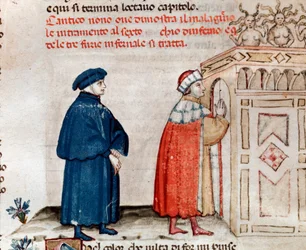 e qui si termina loctavo capitolo.
Cantico nono oue dimostra il malageuole
intramento al sexto chio diuscemo e q
dele tre furie infernale si tratta.
Quel color che uilta di for mi pinse